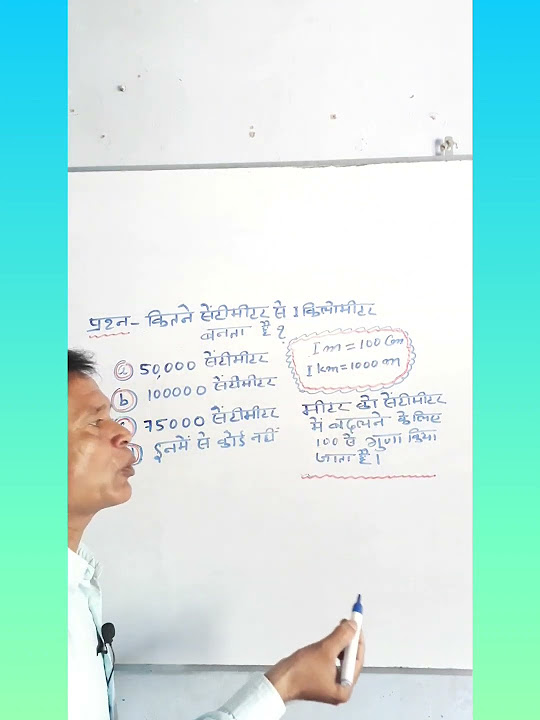 प्रश्न- कितने सेंटीमीटर से 1 किलोमीटर
बनता है?
a 50,000 सेंटीमीटर
b 100000 सेंटीमीटर
75000 सेंटीमीटर
इनमें से कोई नहीं
1 m = 100 Cm
1 km = 1000 m
मीटर को सेंटीमीटर
में बदलने के लिए
100 से गुणा किया
जाता है।